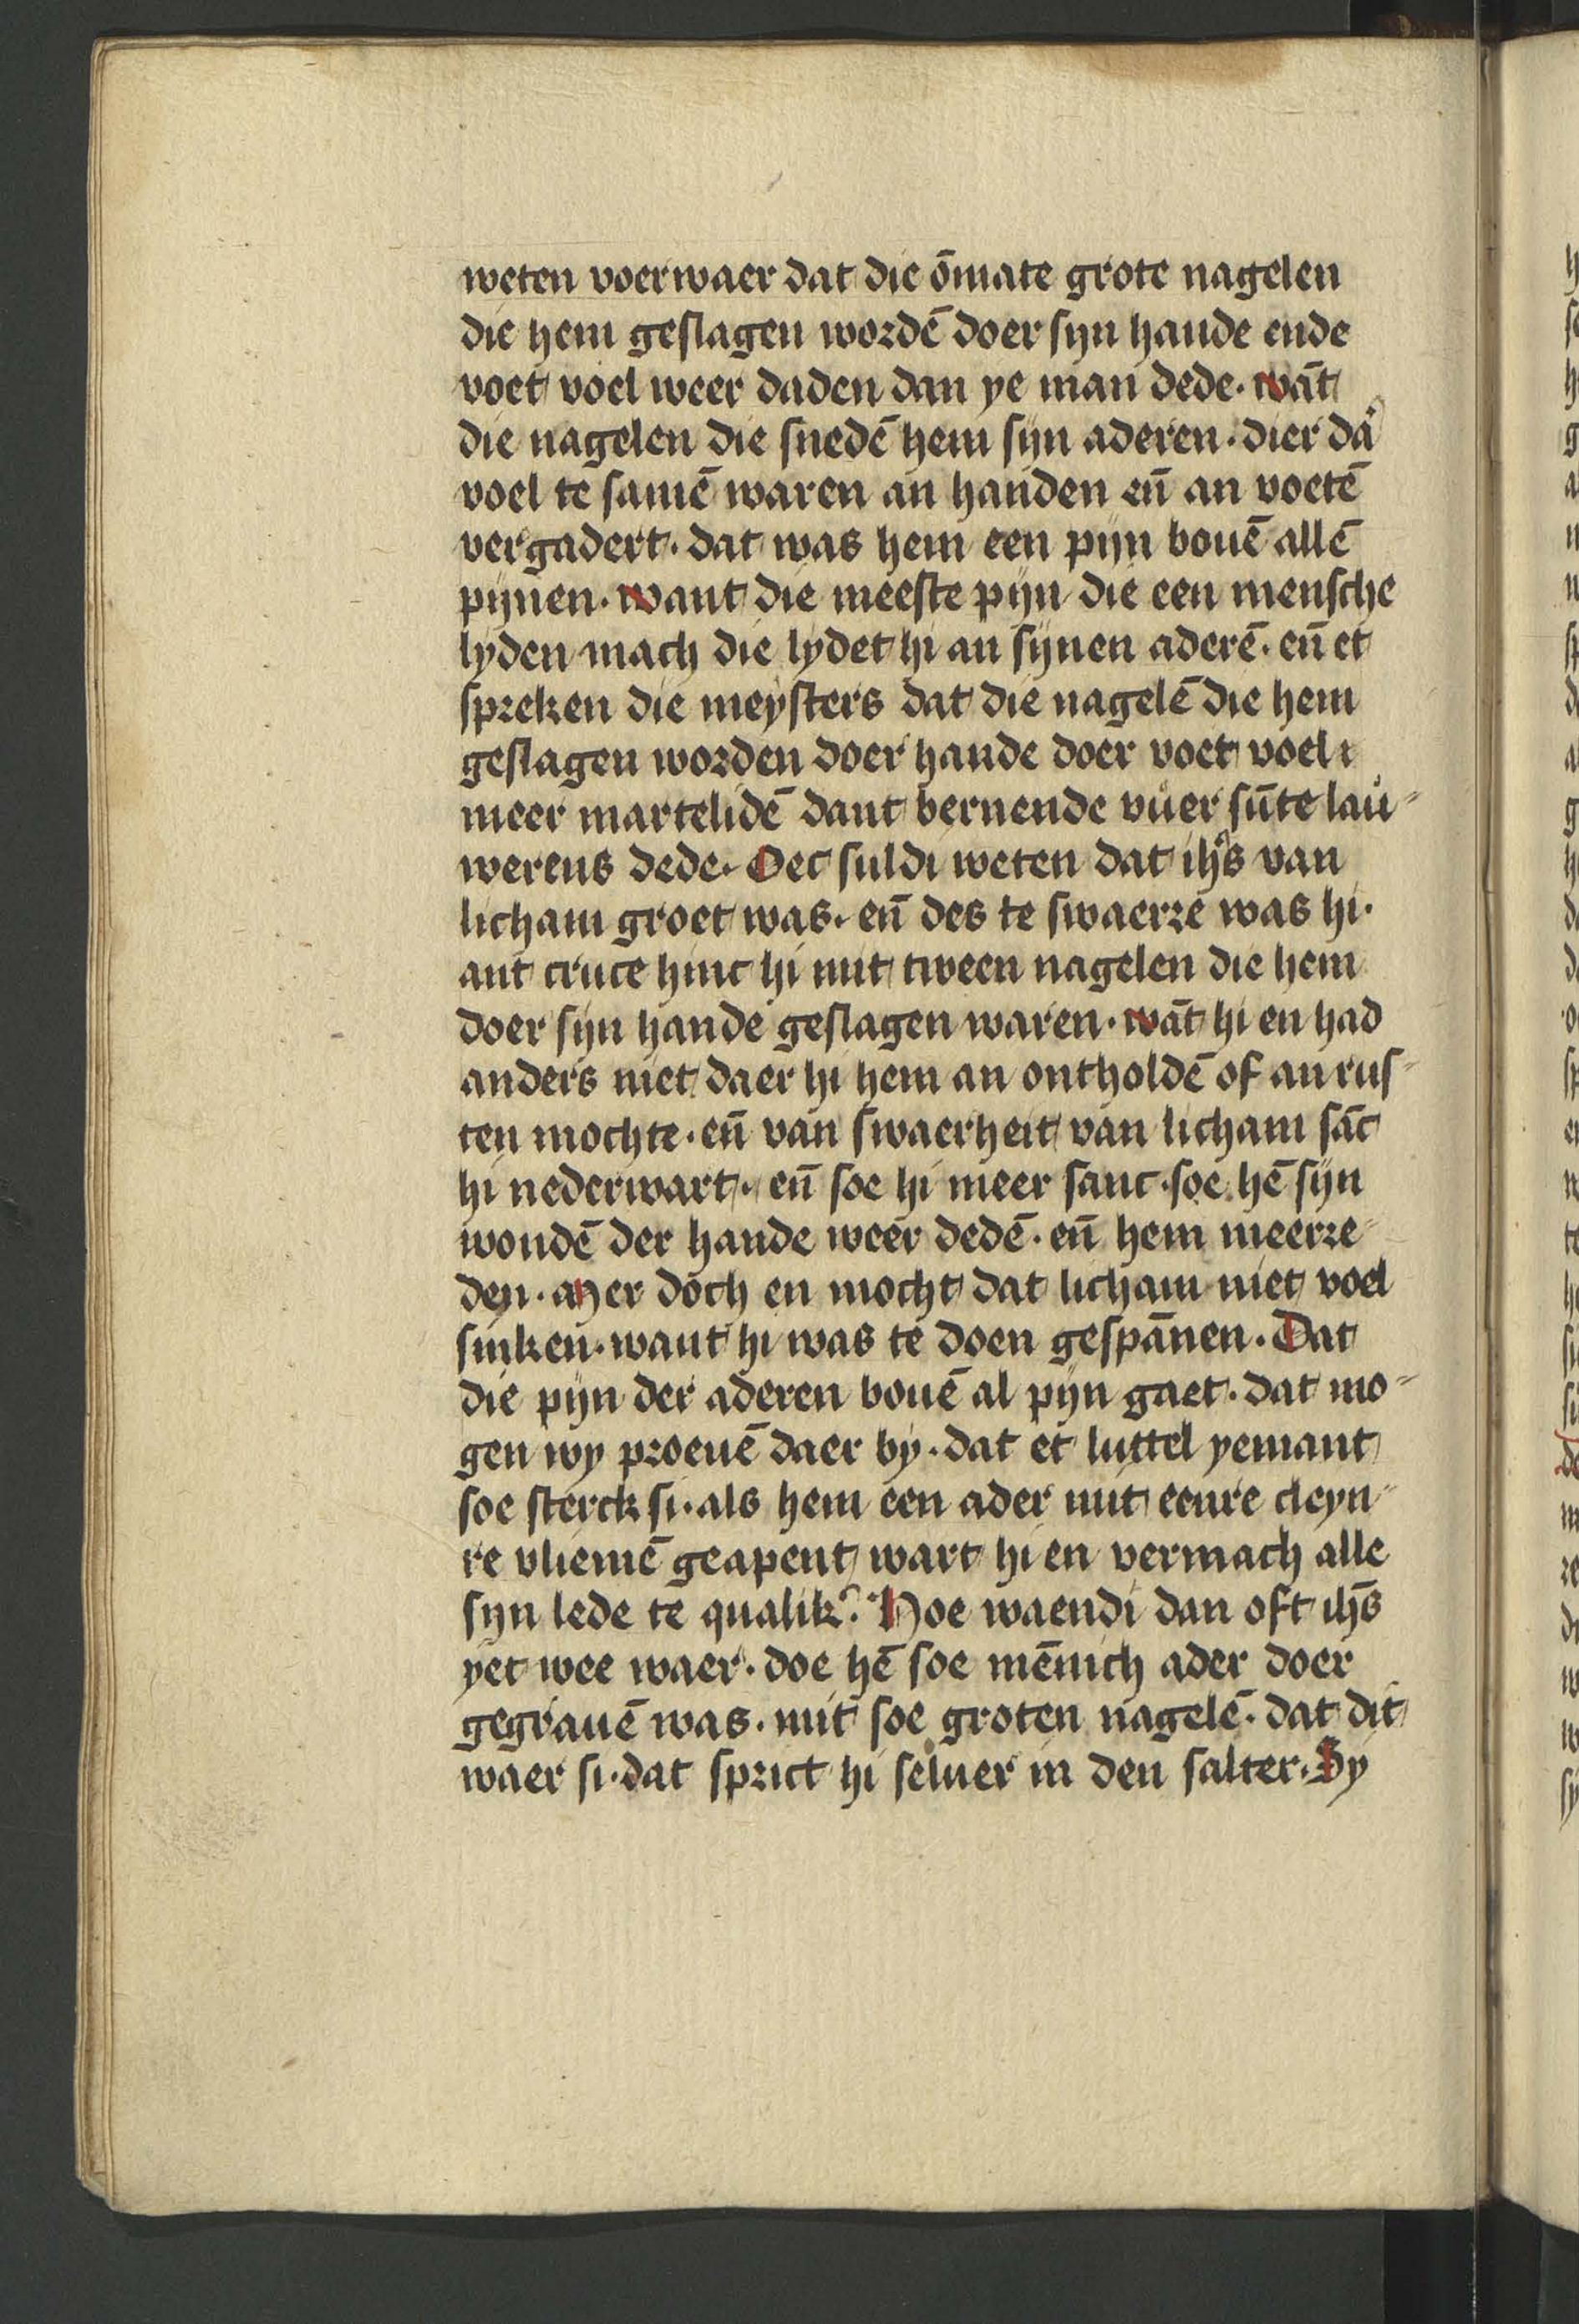 weten voerwaer dat die ōmate grote nagelen
die hem geslagen wordē doer syn hande ende
voet voel weer daden dan ye man dede. wāt
die nagelen die snedē hem syn aderen. dier dā
voel te samē waren an handen eñ an voetē
vergadert. dat was hem een pyn bouē allē
pynen. want die meeste pyn die een mensche
lyden mach die lydet hi an synen aderē. eñ et
spreken die meysters dat die nagelē die hem
geslagen worden doer hande doer voet voel
meer martelidē dant bernende vuer sūte lau-
werens dede. Oec suldi weten dat ihs̄ van
licham groet was. eñ des te swaerre was hi.
ant cruce hinc hi mit tween nagelen die hem
doer syn hande geslagen waren. wāt hi en had
anders niet daer hi hem an ontholdē of an rus-
ten mochte. eñ van swaerheit van licham sāc
hi nederwart. eñ soe hi meer sanc. soe hē syn
wondē der hande weer dedē. eñ hem meerre-
den. Mer doch en mocht dat licham niet voel
sinken. want hi was te doen gespānen. Dat
die pyn der aderen bouē al pyn gaet. dat mo-
gen wy proeuē daer by. dat et luttel yemant
soe sterck si. als hem een ader mit eenre cleyn-
re vliemē geapent wart hi en vermach alle
syn lede te qualik? Hoe waendi dan oft ihs̄
yet wee waer. doe hē soe mēnich ader doer
gegrauē was. mit soe groten nagelē. dat dit
waer si. dat sprict hi seluer in den salter. Sy